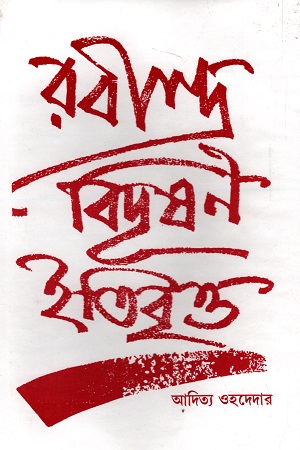 রবীন্দ্র
বিদূষণ
ইতিবৃত্ত
আদিত্য ওহদেদার